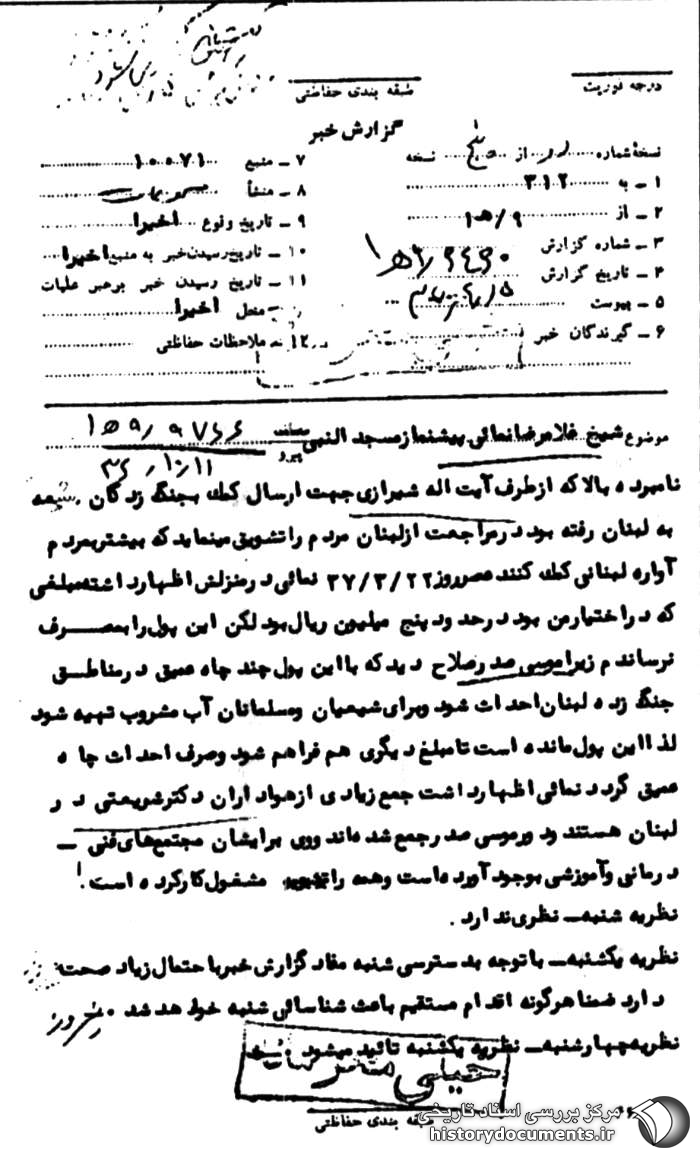 درجه فوریت
طبقه بندی حفاظتی
گزارش خبر
نسخهٔ شماره از پنج نسخه
۱ ـ به ۳۱۲
۲ ـ از ۱۵ه/۹
۳ ـ شماره گزارش
۴ ـ تاریخ گزارش
۵ ـ پیوست
۶ ـ گیرندگان خبر
۷ ـ منبع ۱۰۰۷۱
۸ ـ منشأ
۹ ـ تاریخ وقوع اخیرا
۱۰ ـ تاریخ رسیدن خبر به منبع اخیرا
۱۱ ـ تاریخ رسیدن خبر برهبر عملیات
محل اخیرا
۱۲ ـ ملاحظات حفاظتی
موضوع شیخ غلامرضا نمائی پیشنماز مسجد النبی
نامبرده بالا که از طرف آیت اله شیرازی جهت ارسال کمک بجنگ زدگان شیعه
به لبنان رفته بود در مراجعت از لبنان مردم را تشویق مینماید که بیشتر بمردم
آواره لبنانی کمک کنند عصر روز ۳۷/۳/۲۲ نمائی در منزلش اظهار داشته مبلغی
که در اختیار من بود در حدود پنج میلیون ریال بود لکن این پول را بمصرف
نرساندم زیرا موسی صدر صلاح دید که با این پول چند چاه عمیق در مناطق
جنگ زده لبنان احداث شود و برای شیعیان و مسلمانان آب مشروب تهیه شود
لذا این پول مانده است تا مبلغ دیگری هم فراهم شود و صرف احداث چاه
عمیق گردد نمائی اظهار داشت جمع زیادی از هواداران دکتر شریعتی در
لبنان هستند ودور موسی صدر جمع شده اند و وی برایشان مجتمع های فنی ـ
درمانی و آموزشی بوجود آورده است و همه را مشغول کار کرده است.
نظریه شنبه ـ نظری ندارد.
نظریه یکشنبه ـ با توجه بدسترسی شنبه مفاد گزارش خبر با احتمال زیاد صحت
دارد ضمنا هرگونه اقدام مستقیم باعث شناسائی شنبه خواهد شد
نظریه چهارشنبه ـ نظریه یکشنبه تائید میشود
طبقه بندی حفاظتی
مرکز بررسی اسناد تاریخی
historydocuments.ir